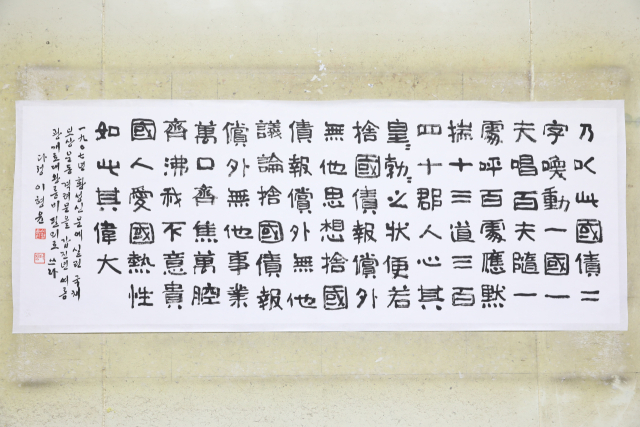 乃以此國債二
字喚動一國一
夫唱百夫隨一
處呼百處應默
揣十三道三百
四十郡人心其
皇〻勃〻之狀便若
捨國債報償外
無他思想捨國
債報償外無他
議論捨國債報
償外無他事業
萬口齊焦萬腔
齊沸我不意貴
國人愛國熱性
如此其偉大
一九〇七년 황성신문에 실린 국채
보상운동 격려문을 갑진년 여름
광개토대왕릉비 필의로 쓰다
이현